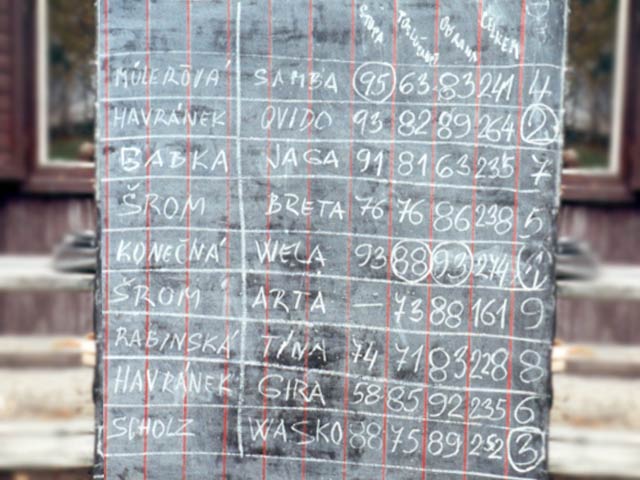 STOPA POSLUŠNOST OBRANA CELKEM
MÜLEROVÁ SAMBA 95 63 83 241 4
HAVRÁNEK QVIDO 93 82 89 264 2
BABKA JAGA 91 81 63 235 7
ŠROM BRETA 76 76 86 238 5
KONEČNÁ WELA 93 88 93 274 1
ŠROM ARTA — 73 88 161 9
RABINSKÁ TINA 74 71 83 228 8
HAVRÁNEK GIRA 58 85 92 235 6
SCHOLZ WASKO 88 75 89 252 3